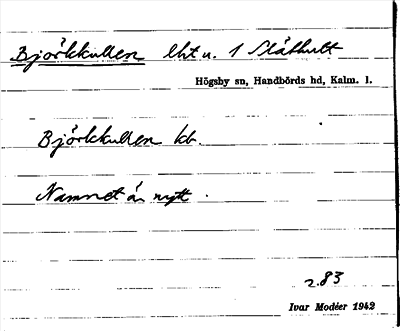 Björkkullen lht u. 1 Slåthult
Högsby sn, Handbörds hd, Kalm. l.
Björkkullen kb.
Namnet är nytt.
s.83
Ivar Modéer 1942